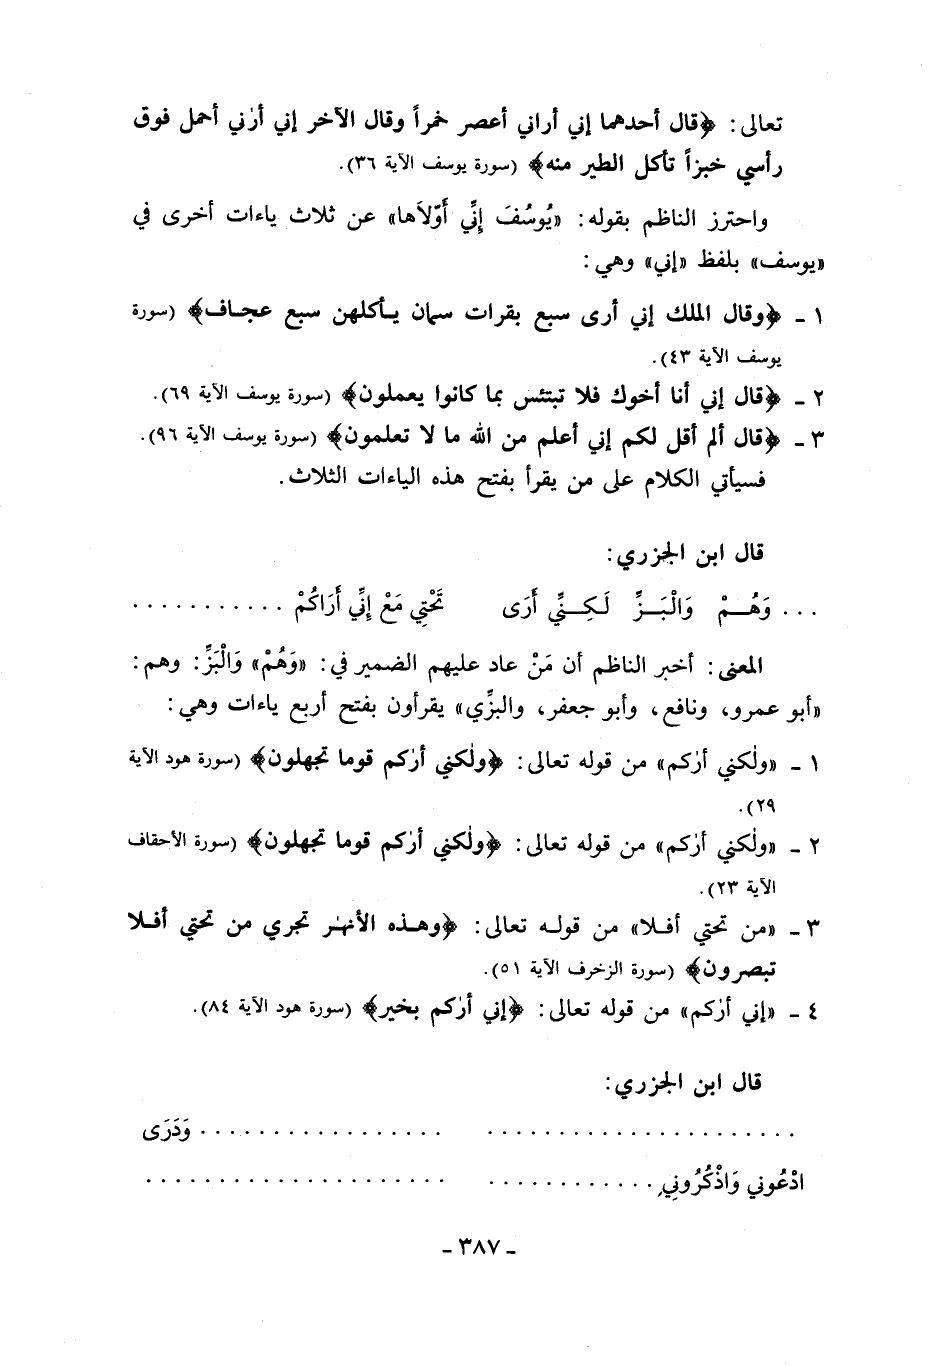 تعالى: ﴿قال أحدهما إني أراني أعصر خمراً وقال الآخر إني أرٰني أحمل فوق
رأسي خبزاً تأكل الطير منه﴾ (سورة يوسف الآية ٣٦).
واحترز الناظم بقوله: «يُوسُفَ إِنِّي أَوّلاَها» عن ثلاث ياءات أخرى في
«يوسف» بلفظ «إني» وهي:
١ ـ ﴿وقال الملك إني أرى سبع بقرات سمان يأكلهن سبع عجاف﴾ (سورة
يوسف الآية ٤٣).
٢ ـ ﴿قال إني أنا أخوك فلا تبتئس بما كانوا يعملون﴾ (سورة يوسف الآية ٦٩).
٣ ـ ﴿قال ألم أقل لكم إني أعلم من الله ما لا تعلمون﴾ (سورة يوسف الآية ٩٦).
فسيأتي الكلام على من يقرأ بفتح هذه الياءات الثلاث.
قال ابن الجزري:
... وَهُـمْ وَالْبَـزِّ لَكِـنِّي أَرَى تَحْتِي مَعْ إِنِّي أَرَاكُمْ ...........
المعنى: أخبر الناظم أن مَنْ عاد عليهم الضمير في: «وَهُمْ» وَالْبَزِّ: وهم:
«أبو عمرو، ونافع، وأبو جعفر، والبزِّي» يقرأون بفتح أربع ياءات وهي:
١ ـ «ولٰكني أرٰكم» من قوله تعالى: ﴿ولٰكني أرٰكم قوما تجهلون﴾ (سورة هود الآية
٢٩).
٢ ـ «ولٰكني أرٰكم» من قوله تعالى: ﴿ولٰكني أرٰكم قوما تجهلون﴾ (سورة الأحقاف
الآية ٢٣).
٣ ـ «من تحتي أفلا» من قوله تعالى: ﴿وهذه الأنهٰر تجري من تحتي أفلا
تبصرون﴾ (سورة الزخرف الآية ٥١).
٤ ـ «إني أرٰكم» من قوله تعالى: ﴿إني أرٰكم بخير﴾ (سورة هود الآية ٨٤).
قال ابن الجزري:
...................... ................. وَدَرَى
ادْعُوني وَاذْكُرُونِي ............ .....................
ـ ٣٨٧ ـ